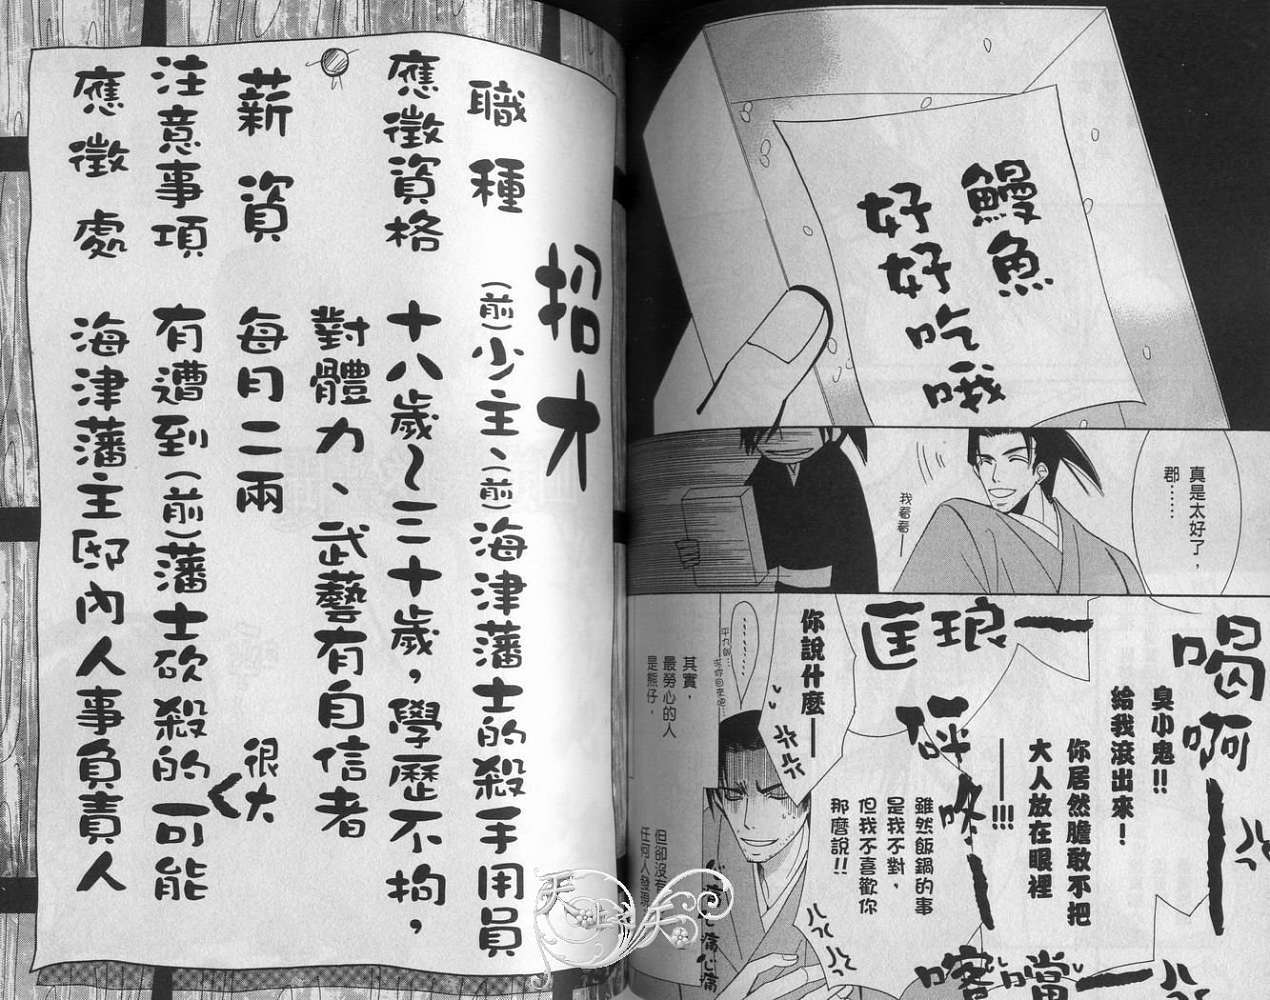 鰻魚
好好吃哦
真是太好了，
郡……
我看看——
喝啊——
臭小鬼!!
給我滾出來！
你居然膽敢不把
大人放在眼裡
——!!!
匡琅——
砰咚——
喀噹——
雖然飯鍋的事
是我不對，
但我不喜歡你
那麼說!!
你說什麼——
其實，
最勞心的人
是熊仔，
但卻沒有
任何人發現
招才
職種
(前)少主、(前)海津藩士的殺手用員
應徵資格
十八歲～三十歲，學歷不拘，
對體力、武藝有自信者
薪資
每月二兩
注意事項
有遭到(前)藩士砍殺的可能
很大
應徵處
海津藩主邸內人事負責人